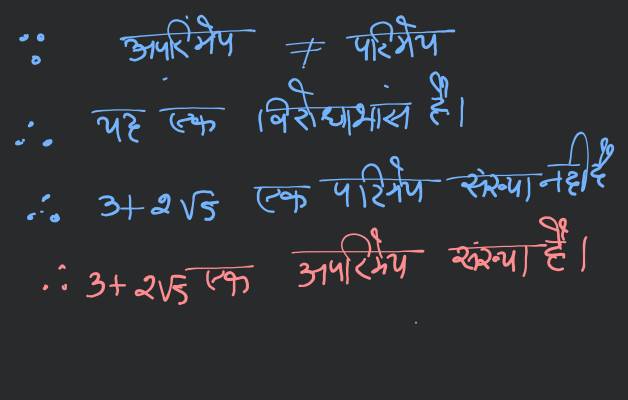 ∵ अपरिमेय ≠ परिमेय
∴ यह एक विरोधाभास है।
∴ 3+2√5 एक परिमेय संख्या नहीं है
∴ 3+2√5 एक अपरिमेय संख्या है।